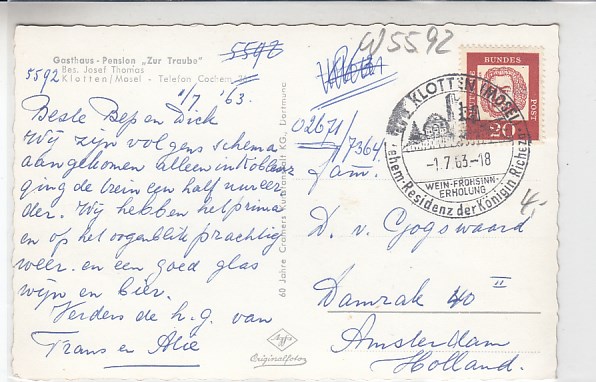 Gasthaus - Pension „Zur Traube"
Bes. Josef Thomas
Klotten/Mosel - Telefon Cochem
5592
5592
1/7 '63.
Beste Bep en Dick
Wij zijn volgens schema
aangekomen alleen in Koblenz
ging de trein een half uur eer
der. Wij hebben het prima
en op het oogenblik prachtig
weer. en een goed glas
wijn en bier.
Verders de h.g. van
Frans en Alie
60 Jahre Cramers Kunstanstalt KG., Dortmund
Agfa
Originalfoto
5592
02671/7364
DEUTSCHE
BUNDES
POST
20
KLOTTEN (MOSEL)
-1.7.63.-18
WEIN-FROHSINN-
ERHOLUNG
ehem. Residenz der Königin Richeza
4,-
fam.
D. v. Gogswaard
Damrak 40 II
Amsterdam
Holland.